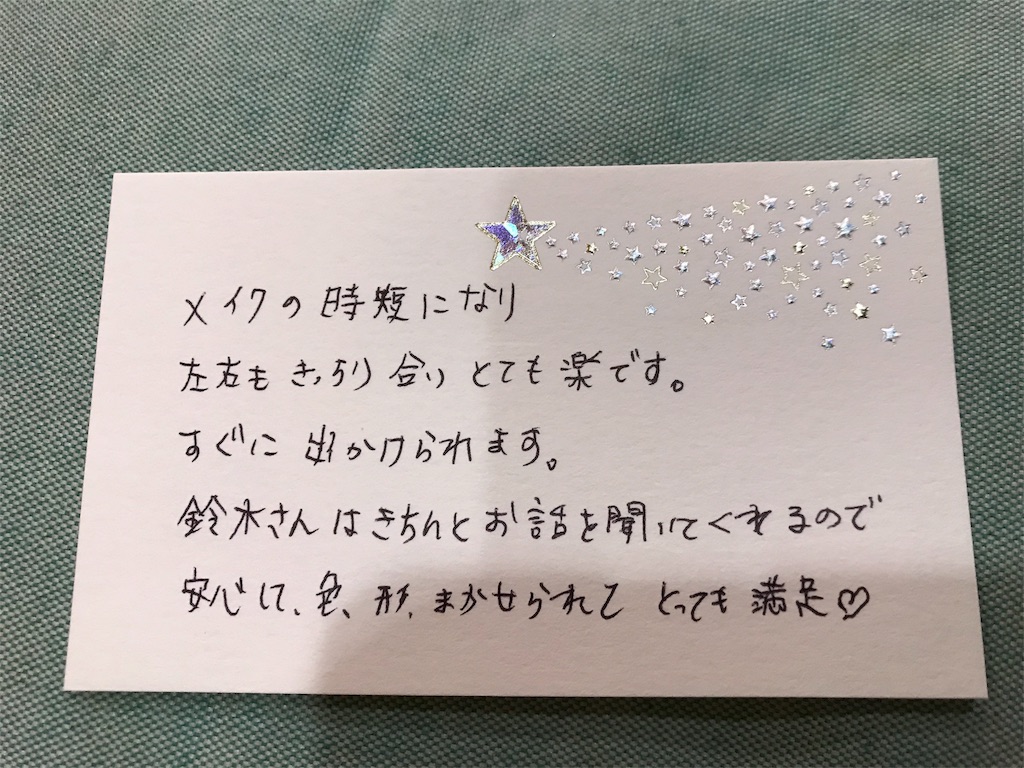 メイクの時短になり
左右もきっちり合いとても楽です。
すぐに出かけられます。
鈴木さんはきちんとお話を聞いてくれるので
安心して、色、形、まかせられてとっても満足♡